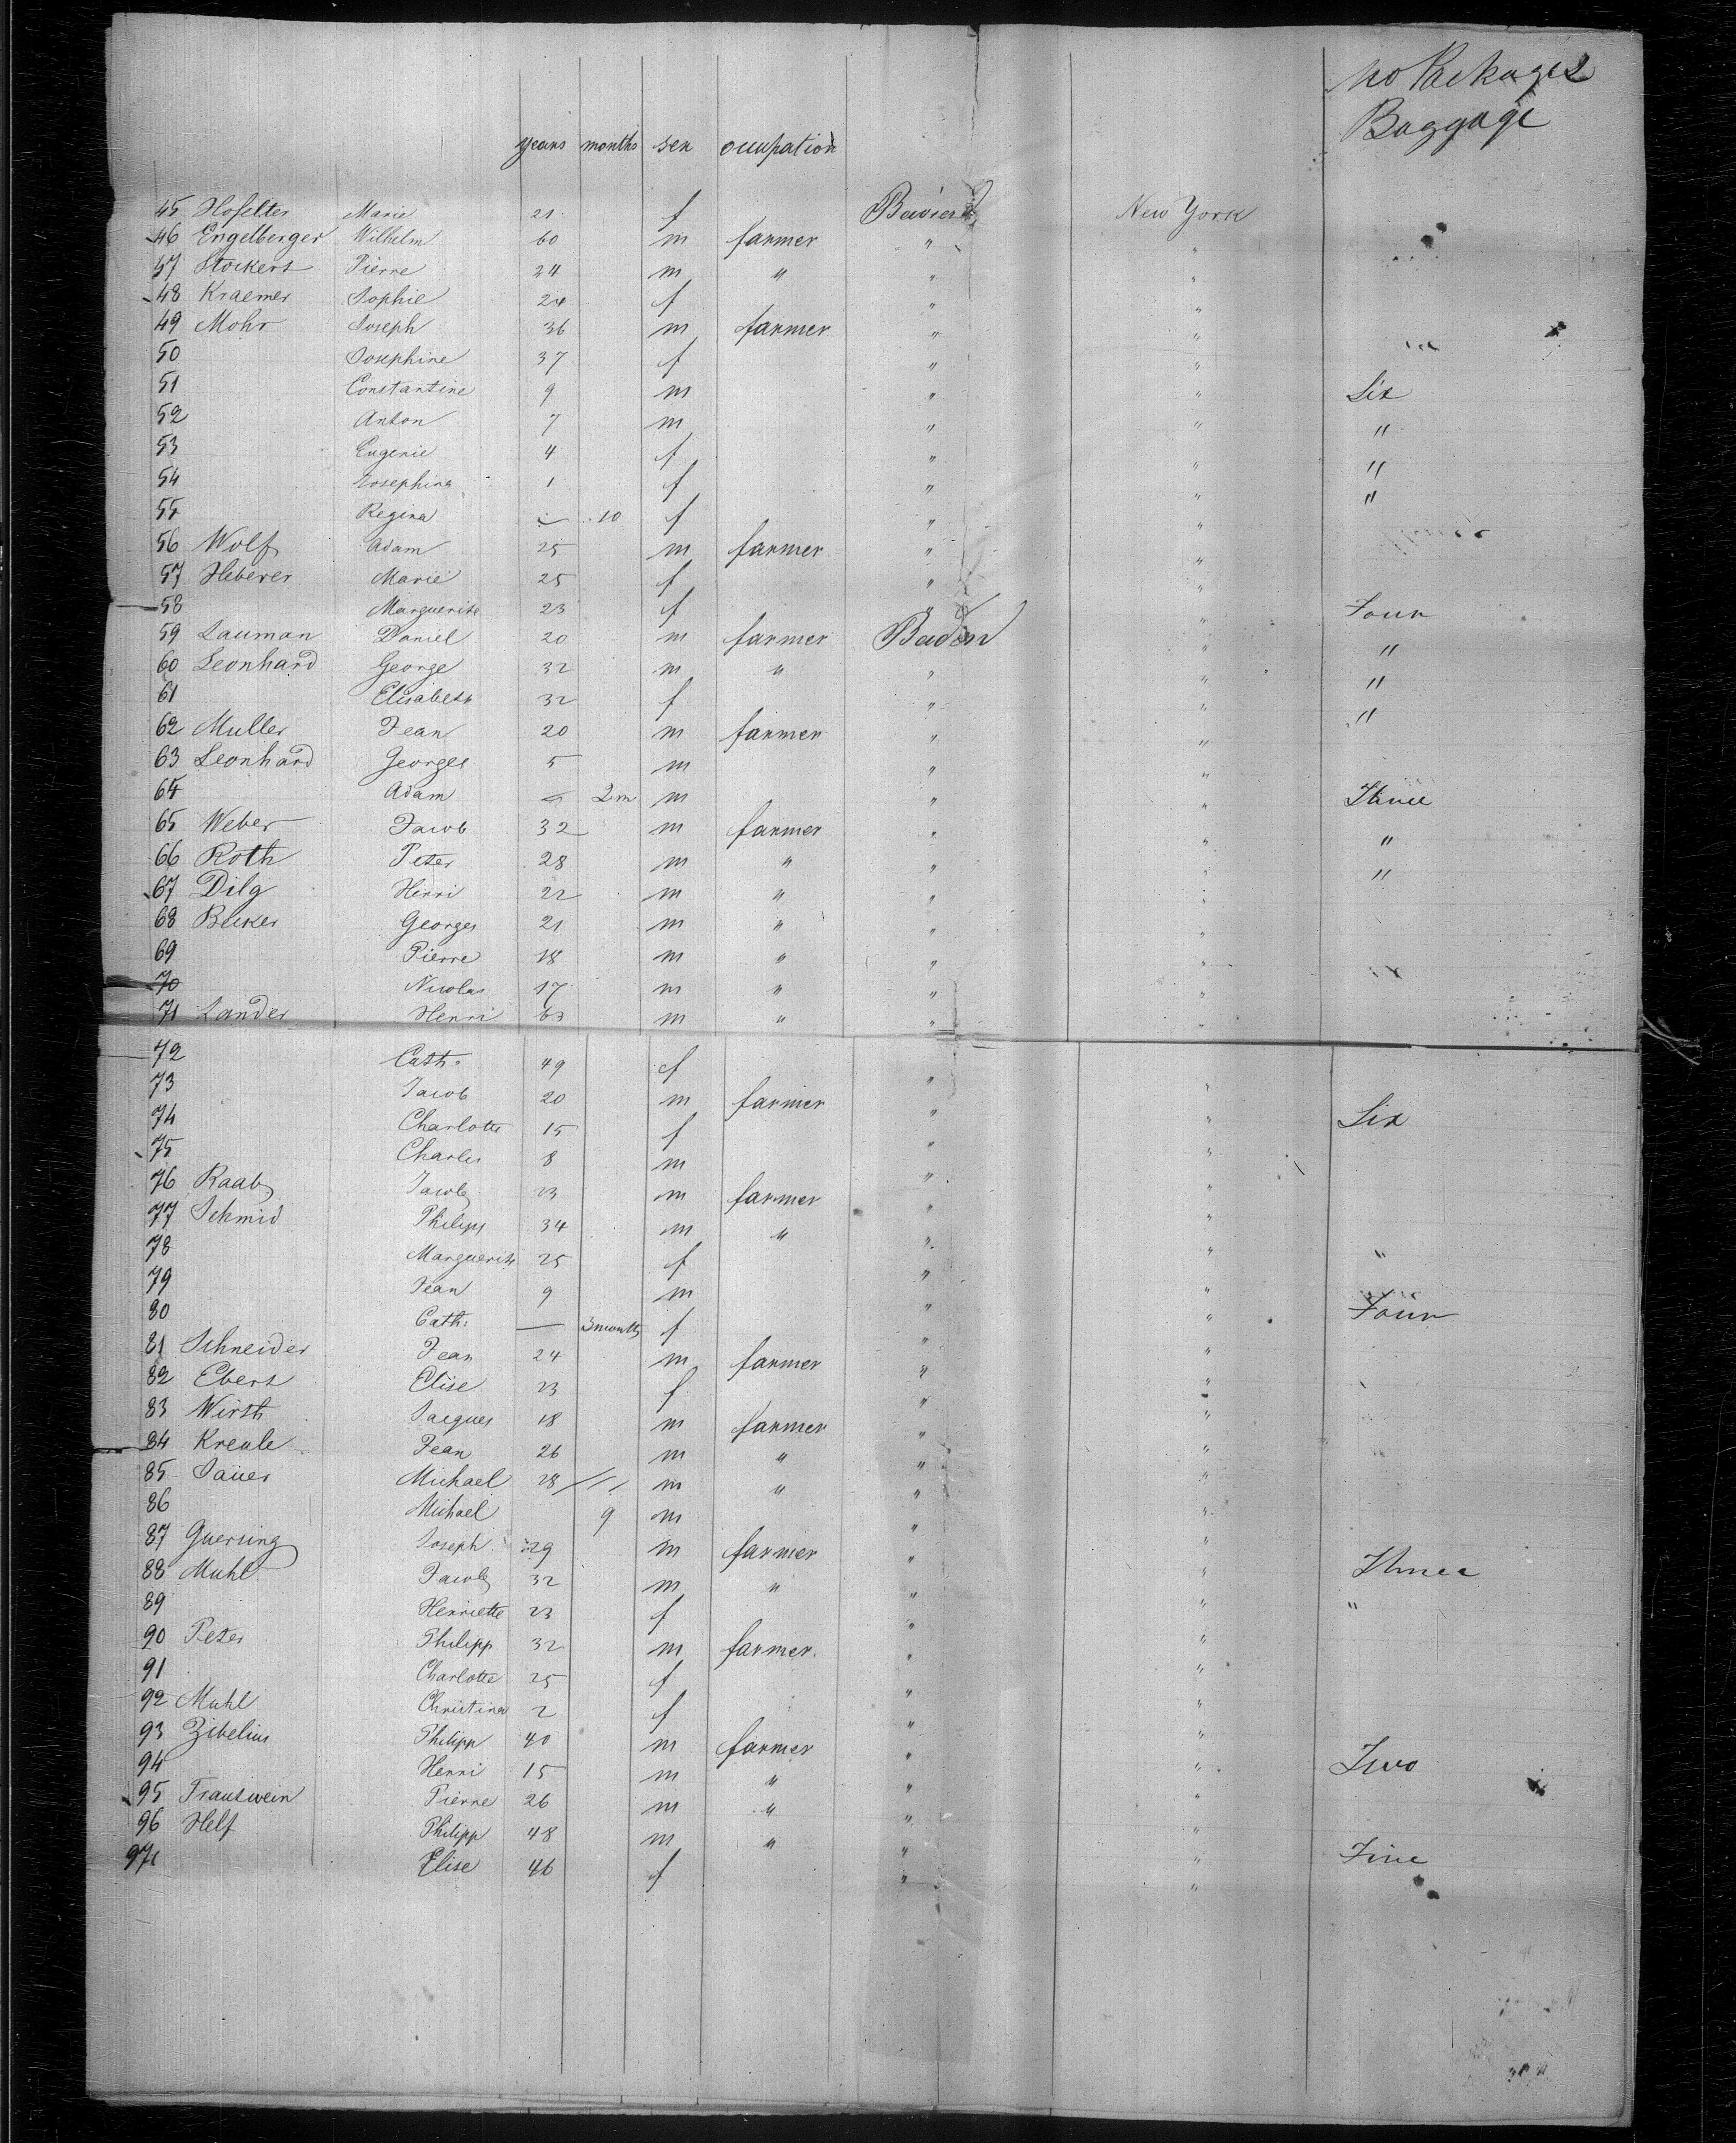 No Packages
Baggage
years months sex occupation
45 Hofelter Marie 21 f Baviera New York
46 Engelberger Wilhelm 60 m farmer " "
47 Stockert Pierre 24 m " " "
48 Kraemer Sophie 24 f " "
49 Mohr Joseph 36 m farmer " "
50 Josephine 37 f " "
51 Constantine 9 m " " Six
52 Anton 7 m " " "
53 Eugenie 4 f " " "
54 Josephina 1 f " " "
55 Regina 10 f " "
56 Wolf Adam 25 m farmer " "
57 Heberer Marie 25 f " "
58 Marguerite 23 f " " Four
59 Lauman Daniel 20 m farmer Baden " "
60 Leonhard George 32 m " " " "
61 Elisabeth 32 f " " "
62 Muller Jean 20 m farmer " "
63 Leonhard Georges 5 m " "
64 Adam 2m m " " Three
65 Weber Jacob 32 m farmer " " "
66 Roth Peter 28 m " " " "
67 Dilg Henri 22 m " " "
68 Becker Georges 21 m " " "
69 Pierre 18 m " " "
70 Nicolas 17 m " " "
71 Lander Henri 63 m " " "
72 Cath: 49 f " "
73 Jacob 20 m farmer " "
74 Charlotte 15 f " " Six
75 Charles 8 m " "
76 Raab Jacob 23 m farmer " "
77 Schmid Philipp 34 m " " "
78 Marguerite 25 f " " "
79 Jean 9 m " "
80 Cath: — 3 months f " " Four
81 Schneider Jean 24 m farmer " "
82 Ebert Elise 23 f " "
83 Wirth Jacques 18 m farmer " "
84 Kreule Jean 26 m " " "
85 Sauer Michael 28 m " " "
86 Michael 9 m " "
87 Guersing Joseph 29 m farmer " "
88 Muhl Jacob 32 m " " " Three
89 Henriette 23 f " " "
90 Peter Philipp 32 m farmer " "
91 Charlotte 25 f " "
92 Muhl Christina 2 f " "
93 Zibelius Philipp 40 m farmer " "
94 Henri 15 m " " " Two
95 Trautwein Pierre 26 m " " "
96 Helf Philipp 48 m " " "
97 Elise 46 f " " Five